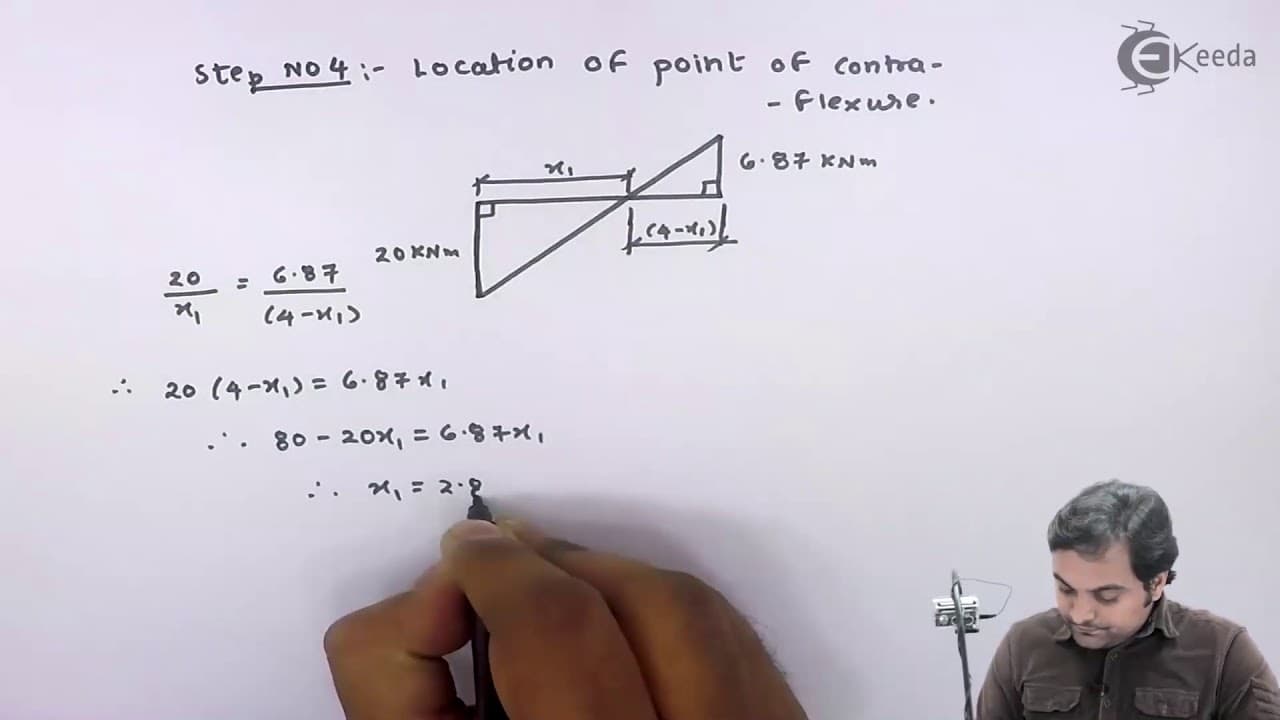 Step NO 4 :- Location of point of contra-
- flexure.
EKeeda
x₁
6.87 KNm
(4-x₁)
20 KNm
20/x₁ = 6.87/(4-x₁)
∴ 20 (4-x₁) = 6.87x₁
∴ 80 - 20x₁ = 6.87x₁
∴ x₁ = 2.